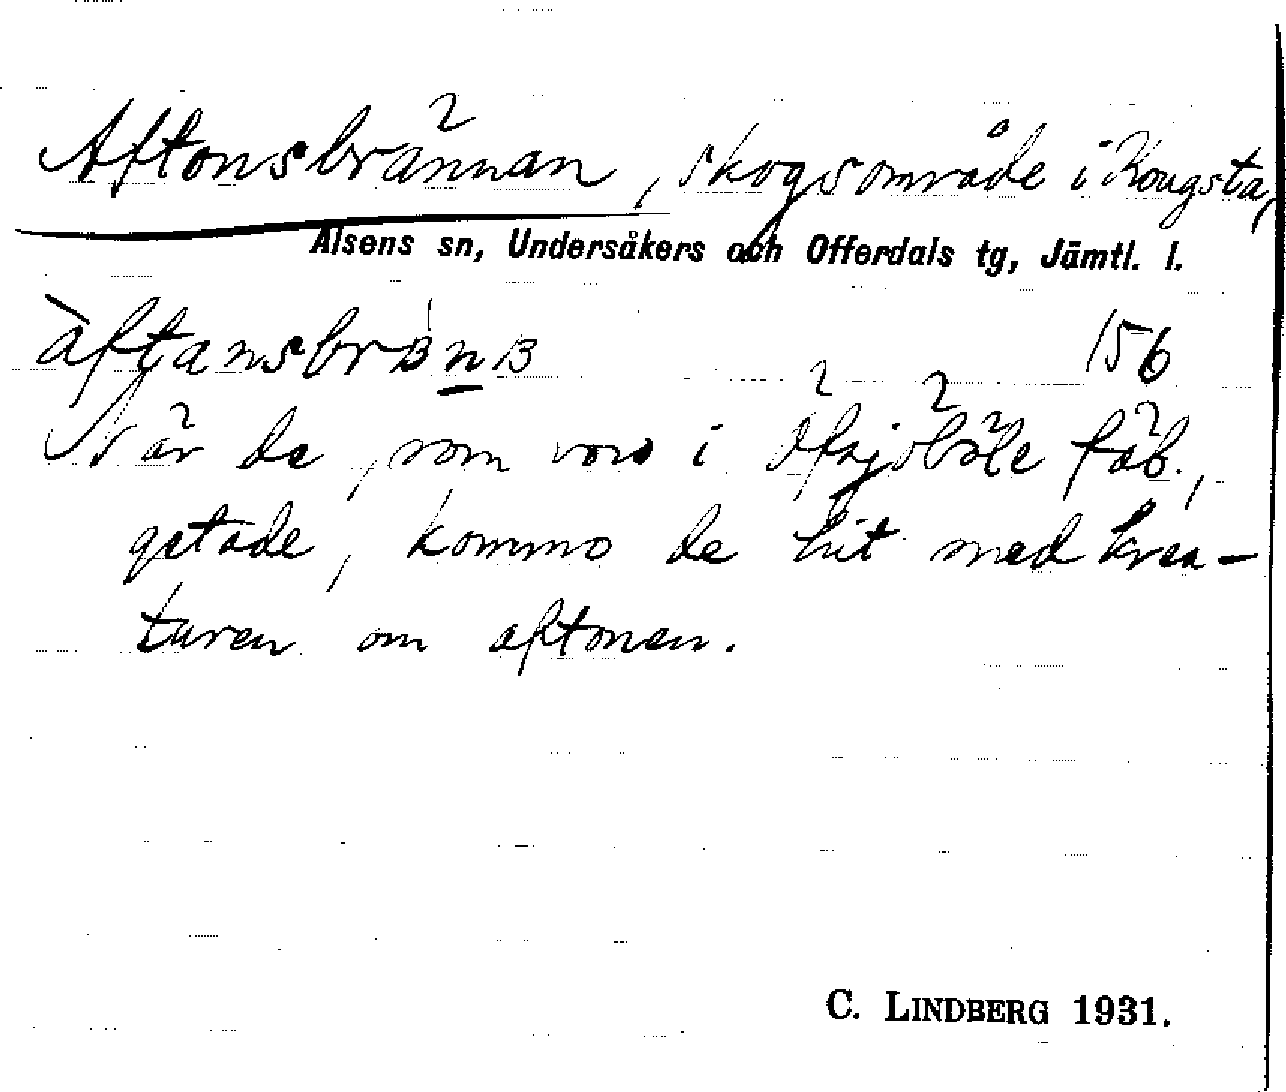 Aftonsbrännan, skogsområde i Kougsta,
Alsens sn, Undersåkers och Offerdals tg, Jämtl. l.
àftansbrànа 156
När de, som voro i Öfsjöböle fäb.,
getade, kommo de hit med krea-
turen om aftonen.
C. LINDBERG 1931.